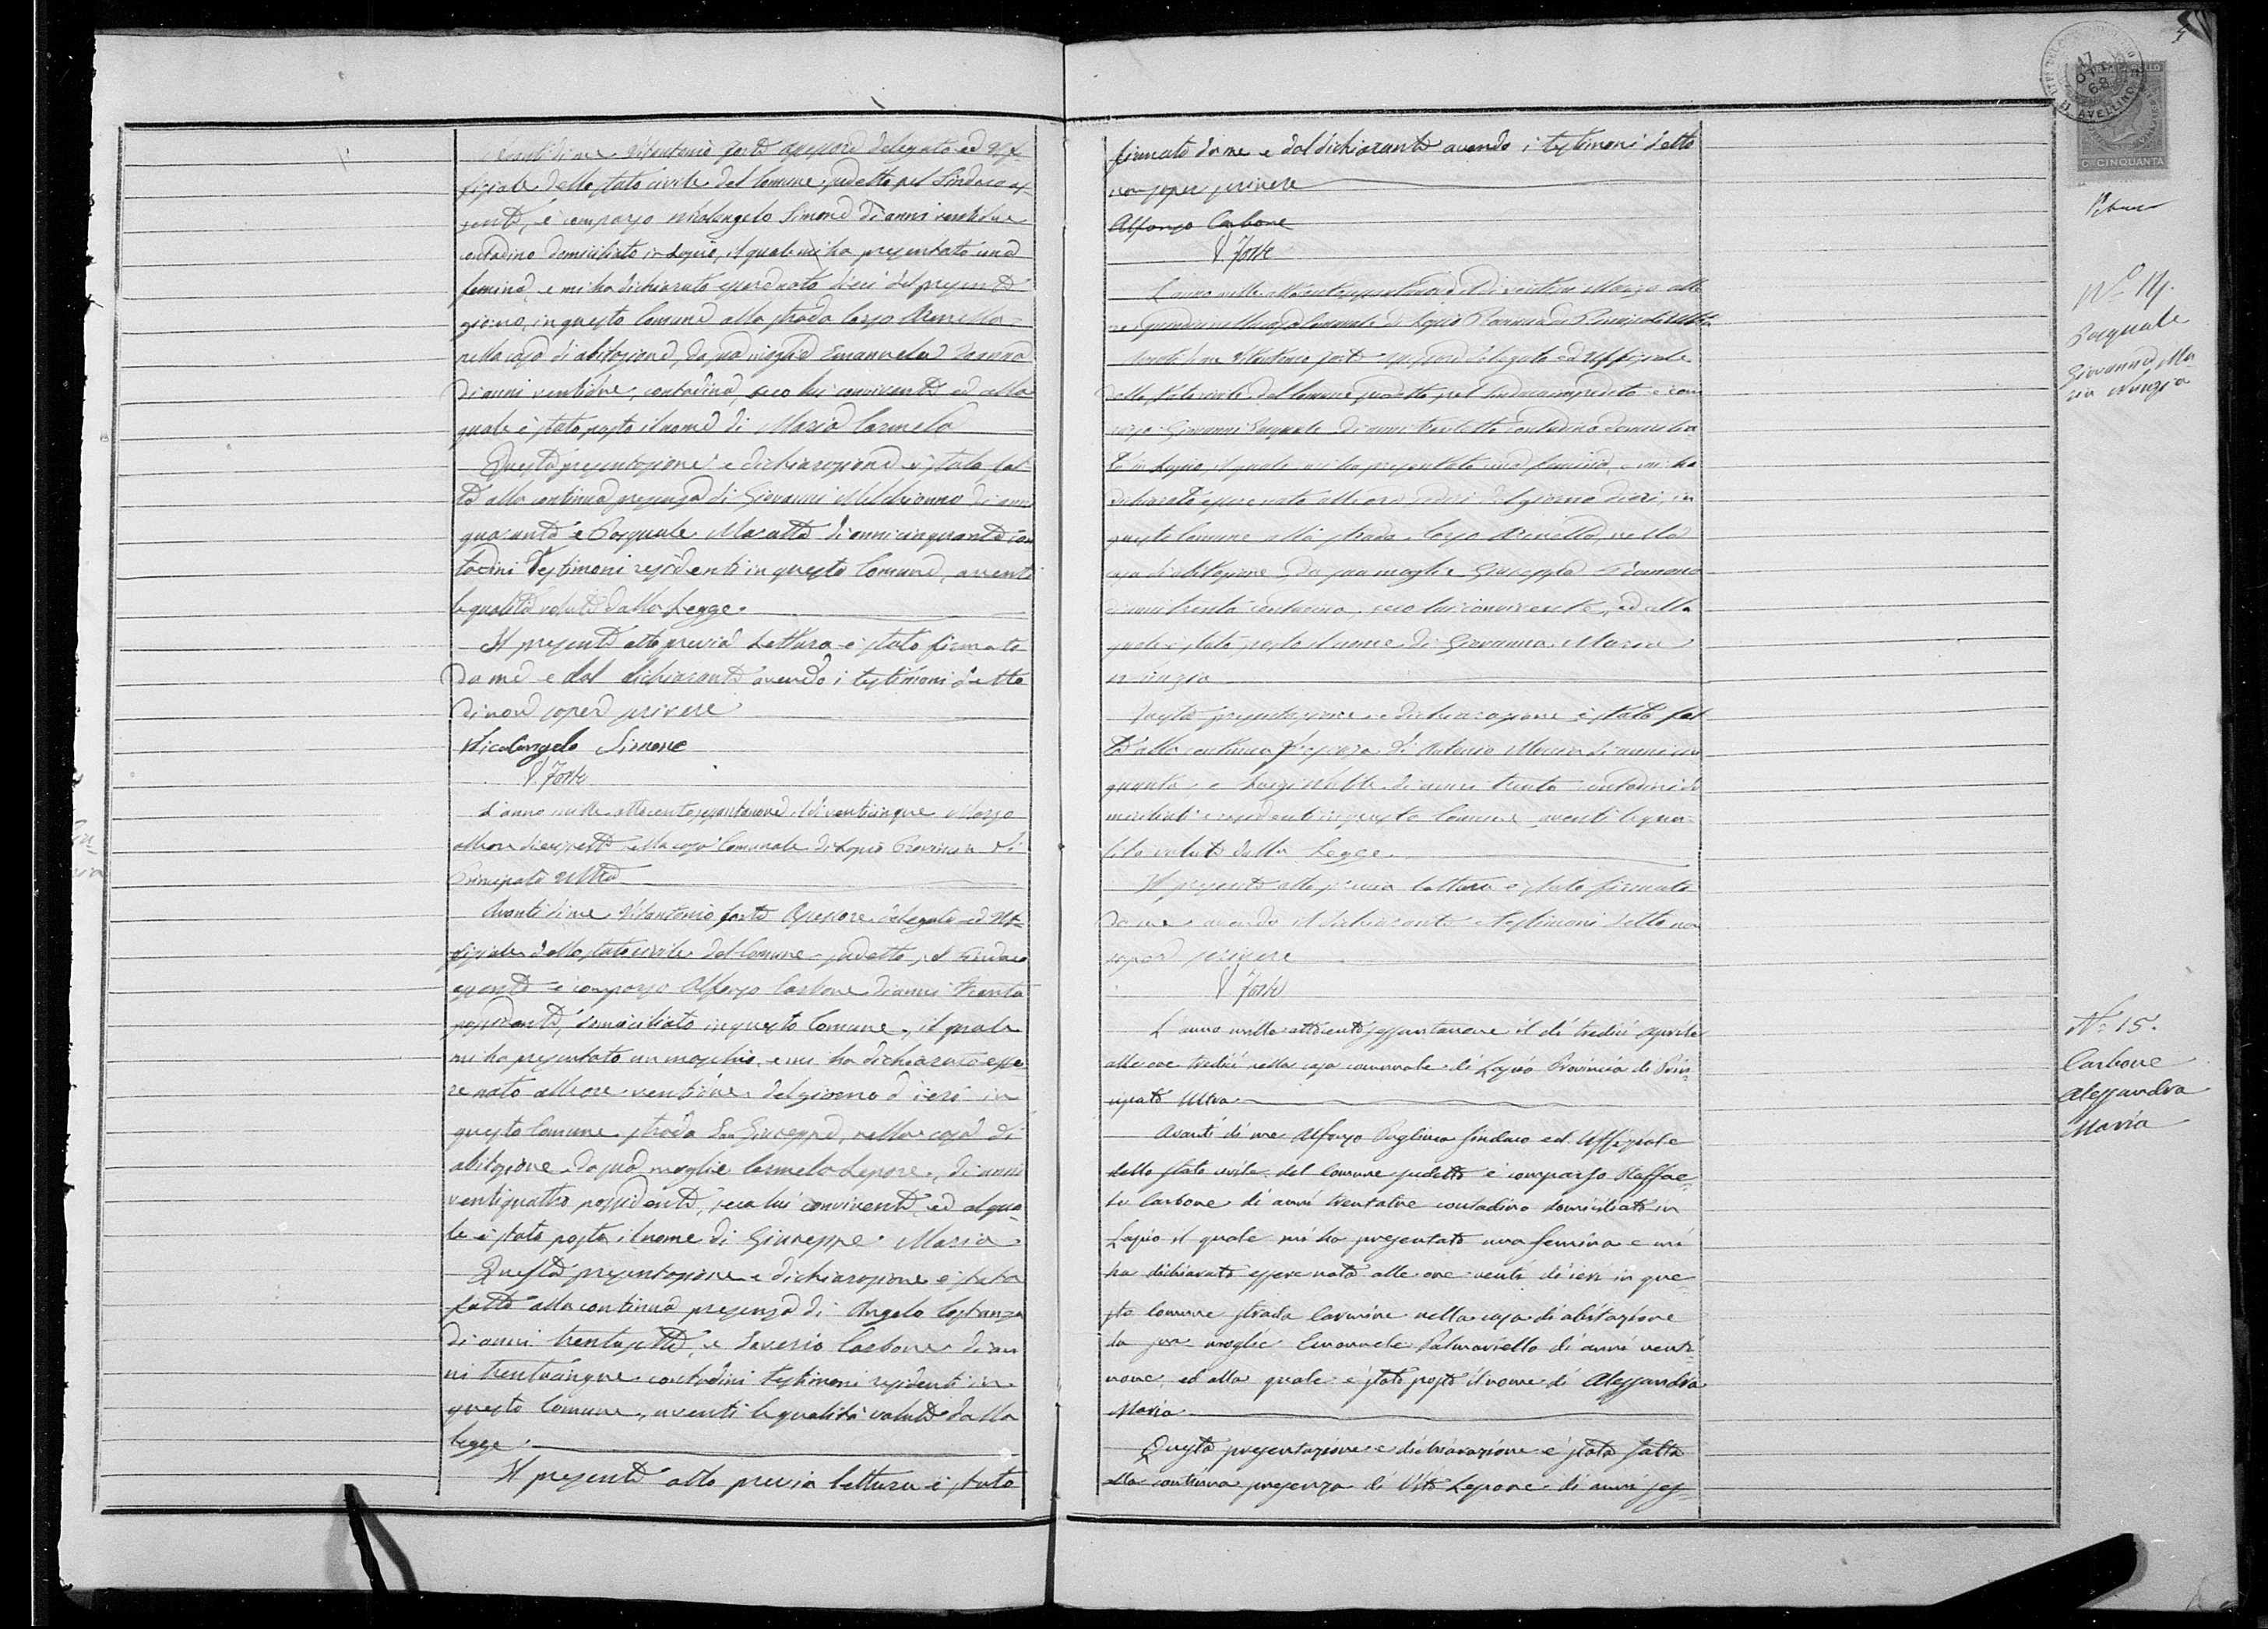 Avanti di me Vitantonio Forte Assessore delegato ed Uf-
fiziale dello stato civile del Comune sudetto pel Sindaco as-
sente, è comparso Nicolangelo Simone di anni ventidue
contadino domiciliato in Lapio, il quale mi ha presentato una
femina, e mi ha dichiarato essere nata dieci del presente
giorno, in questo Comune alla strada Largo Arenella
nella casa di abitazione, da sua moglie Emanuela
di anni ventidue, contadina, seco lui convivente ed alla
quale è stato posto il nome di Maria Carmela
Questa presentazione e dichiarazione è stata fat-
ta alla continua presenza di Giovanni Melchionno di anni
quaranta e Pasquale di anni cinquanta con
tadini Testimoni residenti in questo Comune, aventi
le qualità volute dalla Legge.
Il presente atto previa Lettura è stato firmato
da me e dal dichiarante avendo i testimoni detto
di non sapere scrivere
Nicolangelo Simone
V. Forte
L'anno mille ottocentosessantanove il dì venticinque Marzo
alle ore diecisette nella casa Comunale di Lapio Provincia di
Principato Ultra
Avanti di me Vitantonio Forte Assessore delegato ed Uf-
fiziale dello stato civile del Comune sudetto pel Sindaco
assente è comparso Alfonso Carbone di anni trenta
possidente, domiciliato in questo Comune, il quale
mi ha presentato un maschio e mi ha dichiarato esse
re nato alle ore ventidue del giorno d'ieri in
questo Comune strada San Giuseppe, nella casa di
abitazione da sua moglie Carmela Lepore, di anni
ventiquattro possidente, seco lui convivente, ed al qua-
le è stato posto il nome di Giuseppe Maria
Questa presentazione e dichiarazione è stata
fatta alla continua presenza di Angelo Costanza
di anni trentasette, e Saverio Carbone di an
ni trentacinque contadini testimoni residenti in
questo Comune, aventi le qualità volute dalla
legge.
Il presente atto previa lettura è stato
firmato da me e dal dichiarante avendo i testimoni detto
non saper scrivere
Alfonso Carbone
V. Forte
L'anno mille ottocentosessantanove il dì Marzo alle
ore quindici nella casa Comunale di Lapio Provincia di Principato Ultra
Avanti di me Vitantonio Forte Assessore delegato ed Uffiziale
dello Stato civile del Comune sudetto pel Sindaco impedito è com
parso Giovanni Pasquale di anni trentotto contadino domicilia
to in Lapio, il quale mi ha presentato una femina, e mi ha
dichiarato essere nata alle ore sedici del giorno d'ieri, in
questo Comune alla strada Largo Arenella, nella
casa di abitazione, da sua moglie Giuseppa
di anni trenta contadina, seco lui convivente, ed alla
quale è stato posto il nome di Giovanna Maria
Nunzia
Questa presentazione e dichiarazione è stata fat
ta alla continua presenza di Antonio di anni cin
quanta e Luigi di anni trenta contadini do
miciliati e residenti in questo Comune aventi le qua-
lità volute dalla Legge.
Il presente atto previa lettura è stato firmato
da me avendo il dichiarante e testimoni detto non
sapere scrivere
V. Forte
L'anno mille ottocento sessantanove il dì tredici Aprile
alle ore tredici nella casa comunale di Lapio Provincia di Prin-
cipato Ultra.
Avanti di me Alfonso Pagliuca Sindaco ed Uffiziale
dello stato civile del Comune sudetto è comparso Raffae-
le Carbone di anni trentatre contadino domiciliato in
Lapio il quale mi ha presentato una femina e mi
ha dichiarato essere nata alle ore venti di ieri in que-
sto Comune strada Carmine nella casa di abitazione
da sua moglie Emanuela Palmariello di anni venti-
nove, ed alla quale è stato posto il nome di Alessandra
Maria.
Questa presentazione e dichiarazione è stata fatta
alla continua presenza di Vito Lepore di anni ses-
17
OTT
68
AVELLINO
Cmi CINQUANTA
No 14.
Pasquale
Giovanna Ma-
ria Nunzia
No 15.
Carbone
Alessandra
Maria